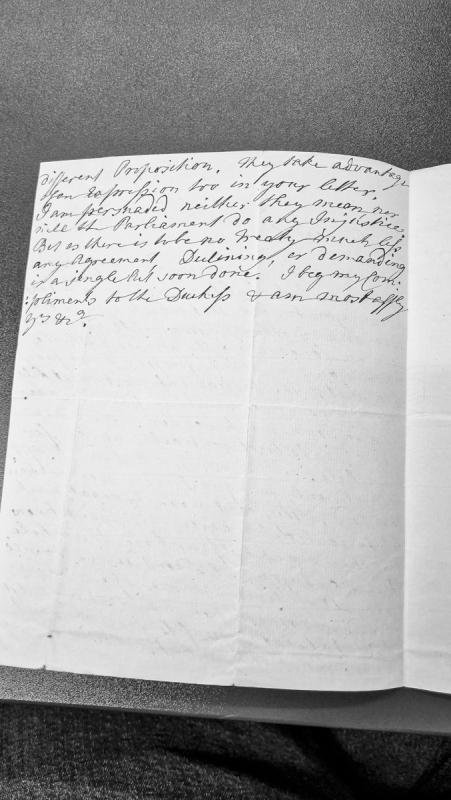 different Proposition. They take advantage
of an Expression too in your letter.
I am perswaded neither they mean nor
will the Parliament do any Injustice,
But as there is to be no Treaty much less
any Agreement Declining, or demanding
is a single but soon done. I beg my Com:
:pliments to the Dutchess & am most affly
yrs &ca.